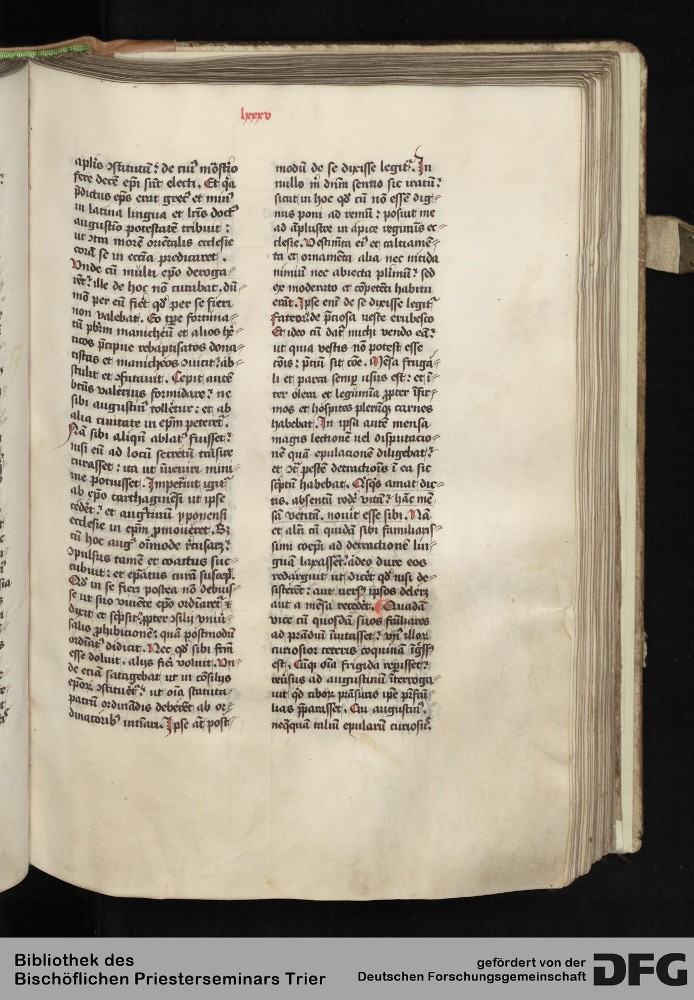 lxxxv
aplis ↄstitutū: de cui⁹ mōst̄io
fere decē ep̄i sūt electi. Et q̄a
p̄dictus ep̄s erat grec⁹ et min⁹
in latina lingua et lr̄is doct⁹
augustio potestatē tribuit:
ut ↄtra morē orientalis ecclesie
corā se in eccīa predicaret.
Unde cū multi ep̄o deroga-
rēt: ille de hoc nō curabat. dū-
mō per eū fiet̄ qd̓ per se fieri
non valebat. Eo tp̄e fortuna-
tū pbr̄m manicheū et alios he-
ticos p̄cipue rebaptisatos dona-
tistas et manicheos ↄuicit: ab-
stulit et ↄfutauit. Cepit autē
btūs valerius formidare: ne
sibi augustin⁹ tolletur: et ab
alia ciuitate in ep̄m peteret̄.
Nā sibi aliqn̄ ablat⁹ fuisset:
nisi eū ad locū secretū trāsire
curasset: ita ut īueniri mini-
me potuisset. Impetuit igit̄
ab ep̄o carthaginēsi ut ipse
cedēt: et aug⁹tinū ypponensi
ecclesie in ep̄m pmoueret. Sꝫ
cū hoc aug⁹ oīmode rcusarꝫ:
ↄpulsus tamē et coactus suc-
cubuit: et ep̄atus curā suscep̄.
Qd̓ in se fieri postea nō debuis-
se ut suo viuēte ep̄o ordiaret̄ ⁊
dixit et sc̄psit: ꝓpter ↄsilij vniū̄-
salis ꝓhibicionē: quā postmodū
ordiāt⁹ didicit. Nec qd̓ sibi fcm̄
esse doluit. alijs fiei voluit. Un-
de eciā satagebat ut in cōsilijs
ep̄oꝝ ↄstitueret̄: ut oīa statuta
patrū ordināndis deberēt ab or-
dinatorib⁹ intimari. Ipse at̄ post-
modū de se dixisse legit̄. In
nullo m̄ dnm̄ sentio sic iratū:
sicut in hoc qd̓ cū nō essē dig-
nus poni ad remū: posuit me
ad āplustre in apice regiminis ec-
clesie. Uestimēta ei⁹ et calciamē-
ta et ornamēta alia nec nitida
nimiū nec abiecta plimū: sed
ex moderato et cōpetēti habitu
erāt. Ipse eni de se dixisse legit̄
Fateor: de p̄ciosa ueste erubesco
Et ideo cū dat̄ michi vendo eā:
ut quia vestis nō potest esse
cōis: p̄ciū sit cōe. Mēsa frugā-
li et parca semp̄ usus est: et ī-
ter olera et legumīa ꝓpter īfir-
mos et hospites plerūqꝫ carnes
habebat. In ipsa autē mensa
magis lectionē uel disputacio-
nē quā epulacionē diligebat:
et ↄ̄ pestē detractiōis ī ea sic
sc̄ptū habebat. Qs̄qs amat dic-
tis. absentū rode̓ vitā: hāc mē-
sā vetitā. nouit esse sibi. Nā
et aln̄ cū quidā sibi familiaris-
simi coep̄i ad detractionē lin-
guā laxassēt: adeo dure eos
redarguit ut dicēt qd̓ nisi de-
sisterēt: aut vers⁹ ipsos deleꝫ
aut a mēsa recedēt. Quadā
vice cū quosdā suos fāiliares
ad prādiū inuitasset: vn⁹ illoꝝ
curiosior ceteris coquinā īgss⁹
est. Cūqꝫ oīa frigida repisset:
reūsus ad augustinū īterroga-
uit qd̓ ciboꝝ prāsuris ipe pr̄fmi-
lias p̄parasset. Cui augustin⁹.
neq̄quā taliū epularū curios⁹.
Bibliothek des
Bischöflichen Priesterseminars Trier
gefördert von der
Deutschen Forschungsgemeinschaft
DFG